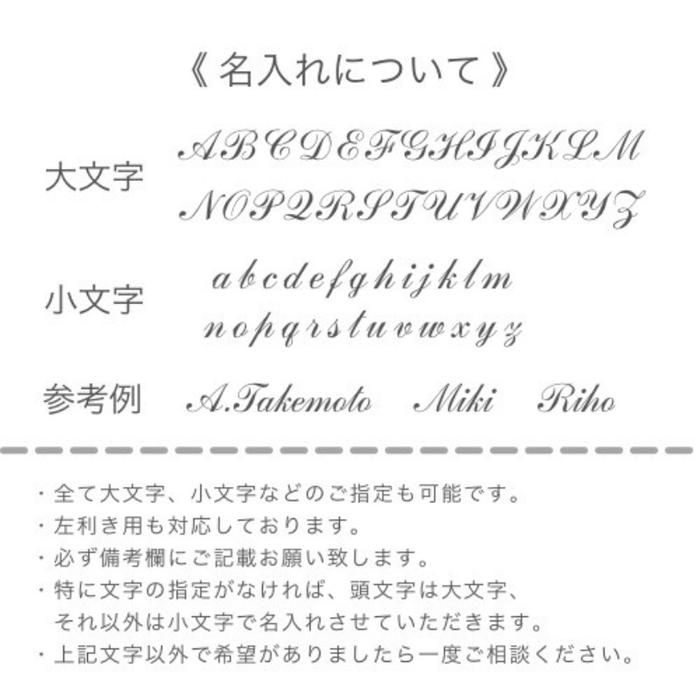 《 名入れについて 》
大文字 ABCDEFGHIJKLM
NOPQRSTUVWXYZ
小文字 abcdefghijklm
nopqrstuvwxyz
参考例 A.Takemoto Miki Riho
・全て大文字、小文字などのご指定も可能です。
・左利き用も対応しております。
・必ず備考欄にご記載お願い致します。
・特に文字の指定がなければ、頭文字は大文字、
それ以外は小文字で名入れさせていただきます。
・上記文字以外で希望がありましたら一度ご相談ください。